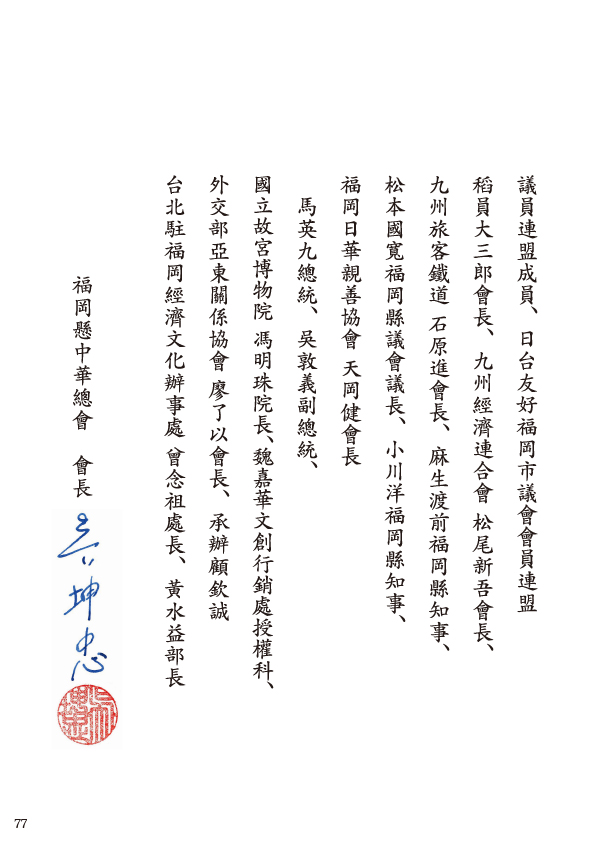 議員連盟成員、日台友好福岡市議會會員連盟
稻員大三郎會長、九州經濟連合會 松尾新吾會長、
九州旅客鐵道 石原進會長、麻生渡前福岡縣知事、
松本國寬福岡縣議會議長、小川洋福岡縣知事、
福岡日華親善協會 天岡健會長
馬英九總統、吳敦義副總統、
國立故宮博物院 馮明珠院長、魏嘉華文創行銷處授權科、
外交部亞東關係協會 廖了以會長、承辦顧欽誠
台北駐福岡經濟文化辦事處 曾念祖處長、黃水益部長
福岡懸中華總會 會長
吳坤忠
77